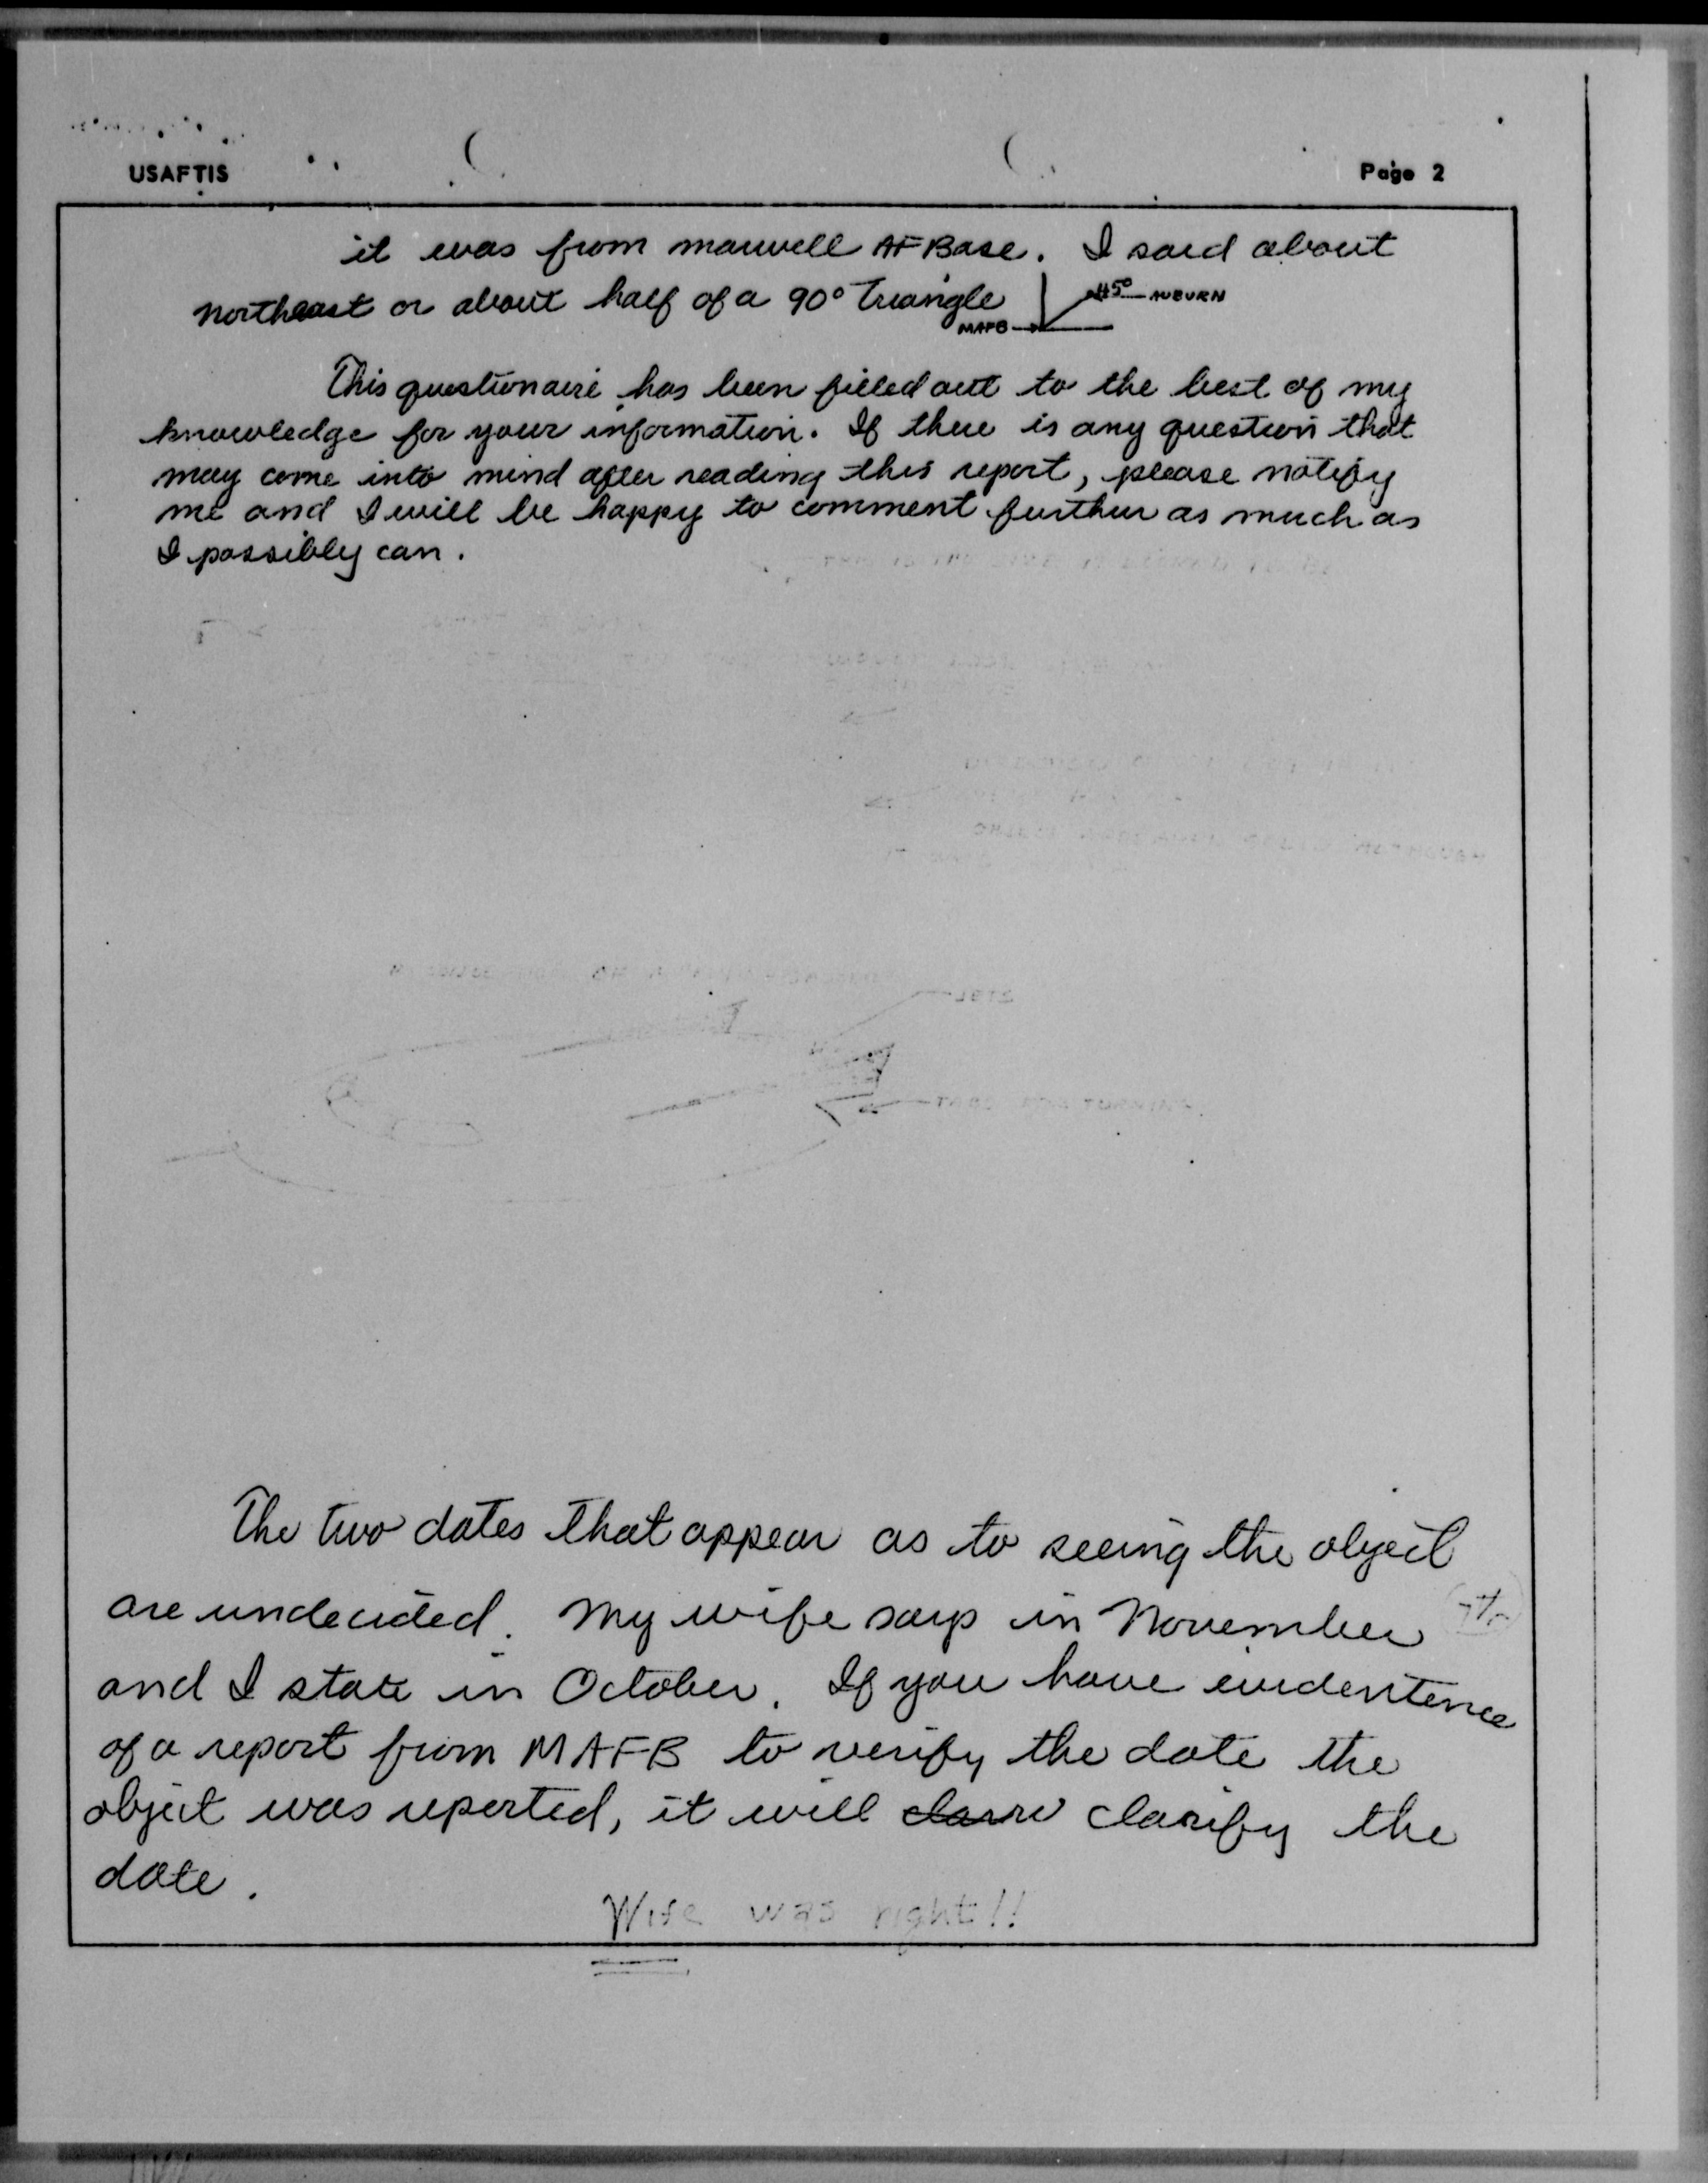 USAFTIS Page 2
it was from maxwell AF Base. I said about
northeast or about half of a 90° Triangle
45° AUBURN
MAFB
This questionaire has been filled out to the best of my
knowledge for your information. If there is any question that
may come into mind after reading this report, please notify
me and I will be happy to comment further as much as
I possibly can.
The two dates that appear as to seeing the object
are undecided. My wife says in November
and I state in October. If you have evidentence
of a report from MAFB to verify the date the
object was reported, it will clarify the
date.
Wife was right!!